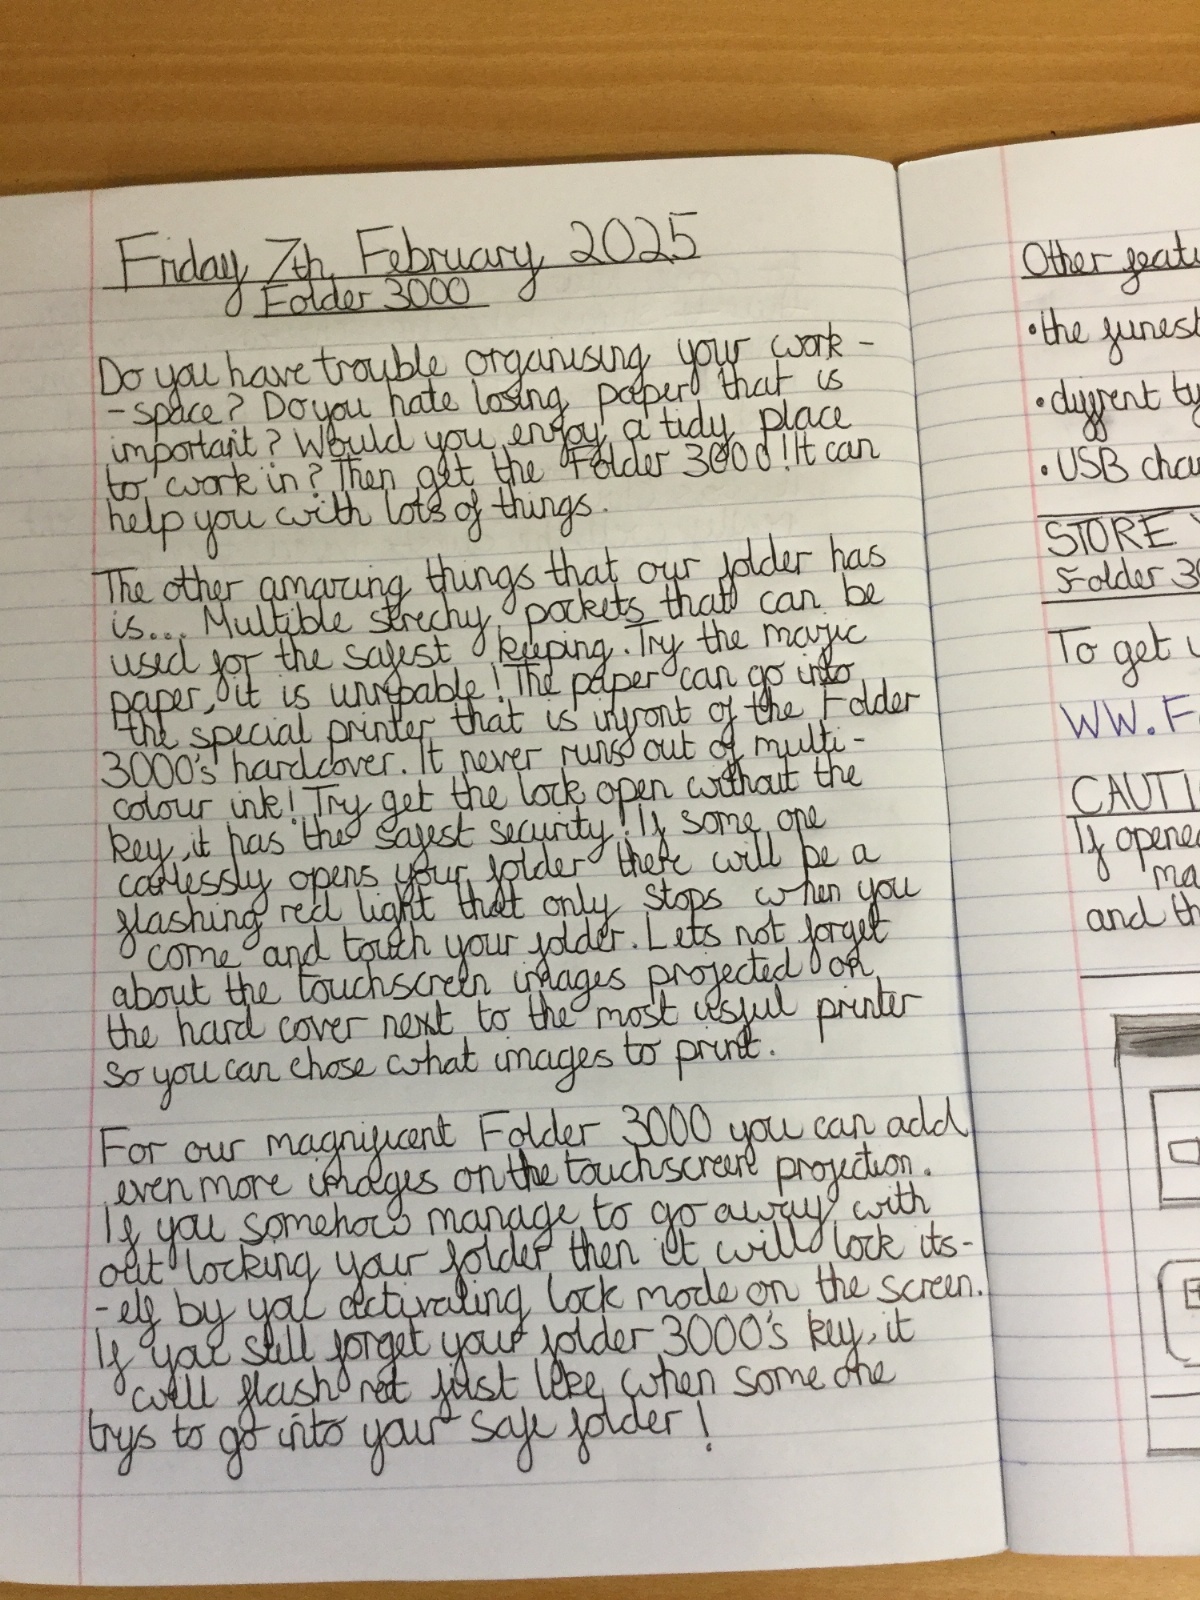 Friday 7th February 2025
Folder 3000
Do you have trouble organising your work -
- space? Do you hate losing paper that is
important? Would you enjoy a tidy place
to work in? Then get the Folder 3000! It can
help you with lots of things.
The other amazing things that our folder has
is... Multible strechy pockets that can be
used for the safest keeping. Try the magic
paper, it is unripable! The paper can go into
the special printer that is infront of the Folder
3000's hardcover. It never runs out of multi -
colour ink! Try get the lock open without the
key, it has the safest security! If some one
carlessly opens your folder there will be a
flashing red light that only stops when you
come and touch your folder. Lets not forget
about the touchscreen images projected on
the hard cover next to the most usful printer
so you can chose what images to print.
For our magnificant Folder 3000 you can add
even more images on the touchscreen projection.
If you somehow manage to go away with
out locking your folder then it will lock its -
- elf by you activating lock mode on the screen.
If you still forget your folder 3000's key, it
will flash ret just like when some one
trys to go into your safe folder!
Other featu
• the funest
• diffrent ty
• USB cha
STORE
Folder 30
To get
WW.F
CAUTI
If opene
ma
and th